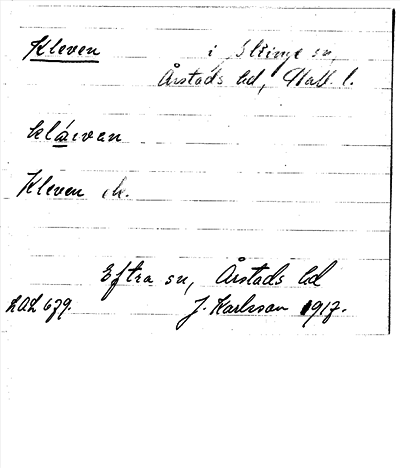 Kleven i Slöinge sn,
Årstads hd, Hall. l.
kláivan
Kleven
Eftra sn, Årstads hd
LAL 679. J. Karlsson 1917.